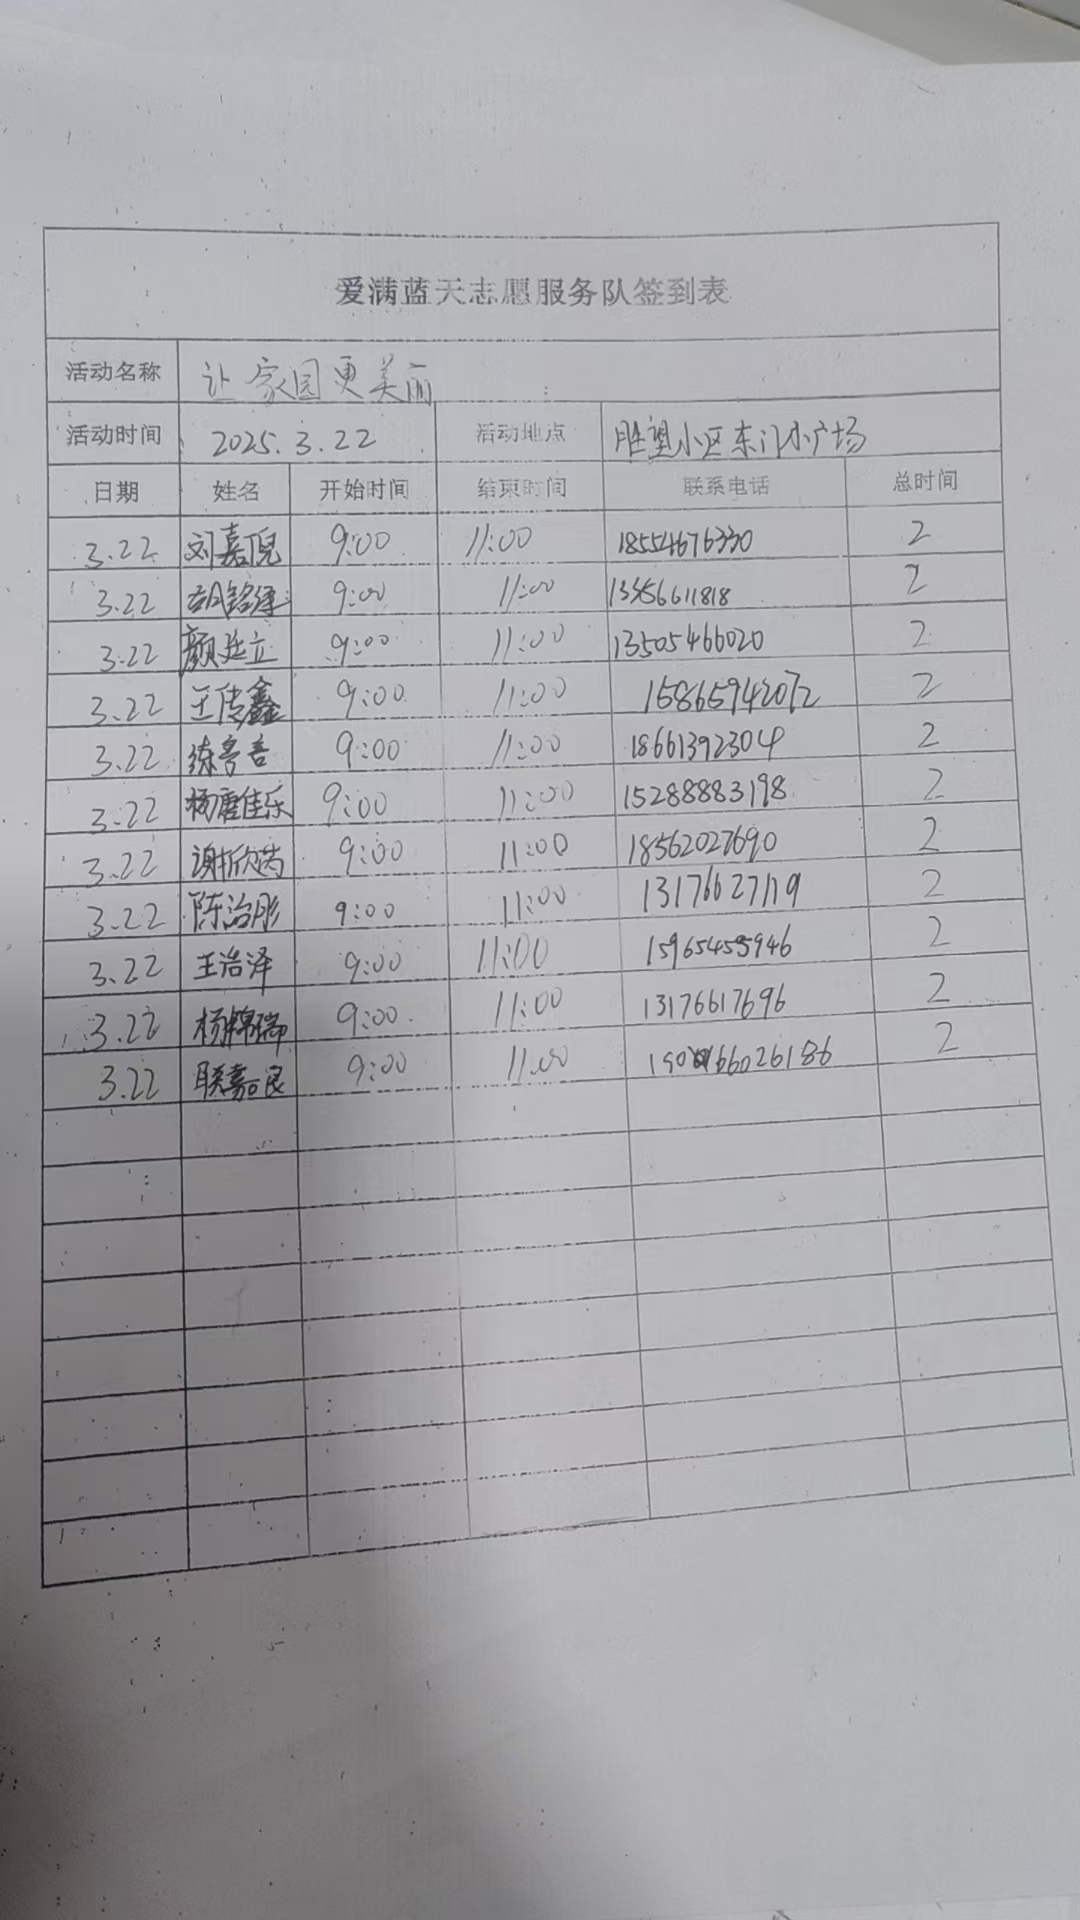 爱满蓝天志愿服务队签到表
活动名称 让家园更美丽
活动时间 2025.3.22 活动地点 胜望小区东门小广场
日期 姓名 开始时间 结束时间 联系电话 总时间
3.22 刘嘉倪 9:00 11:00 18554676330 2
3.22 9:00 11:00 13356611818 2
3.22 颜廷立 9:00 11:00 13505466020 2
3.22 王传鑫 9:00 11:00 15865942072 2
3.22 9:00 11:00 18661392304 2
3.22 杨唐佳乐 9:00 11:00 15288883198 2
3.22 谢欣芮 9:00 11:00 18562027690 2
3.22 陈治彤 9:00 11:00 13176627119 2
3.22 王浩泽 9:00 11:00 15965455946 2
3.22 杨锦瑞 9:00 11:00 13176617696 2
3.22 9:00 11:00 2